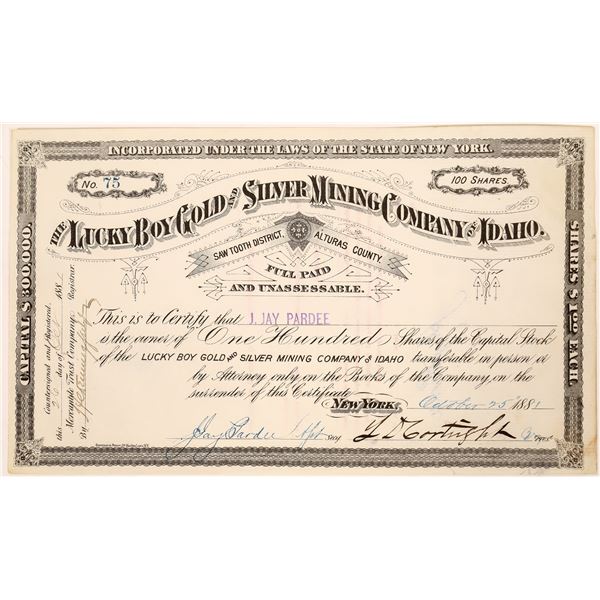 INCORPORATED UNDER THE LAWS OF THE STATE OF NEW YORK.
No. 75
100 SHARES.
THE LUCKY BOY GOLD AND SILVER MINING COMPANY OF IDAHO.
SAW TOOTH DISTRICT, ALTURAS COUNTY.
FULL PAID
AND UNASSESSABLE.
CAPITAL $300,000.
SHARES $1.00 EACH.
Countersigned and Registered
this 25 day of Oct 1881
Mercantile Trust Company, Registrar.
By
This is to Certify that J. JAY PARDEE
is the owner of One Hundred Shares of the Capital Stock
of the LUCKY BOY GOLD AND SILVER MINING COMPANY OF IDAHO transferable in person or
by Attorney only on the Books of the Company, on the
surrender of this Certificate.
NEW YORK, October 25 1881
Jay Pardee Sec'y Y D Cortright Pres't